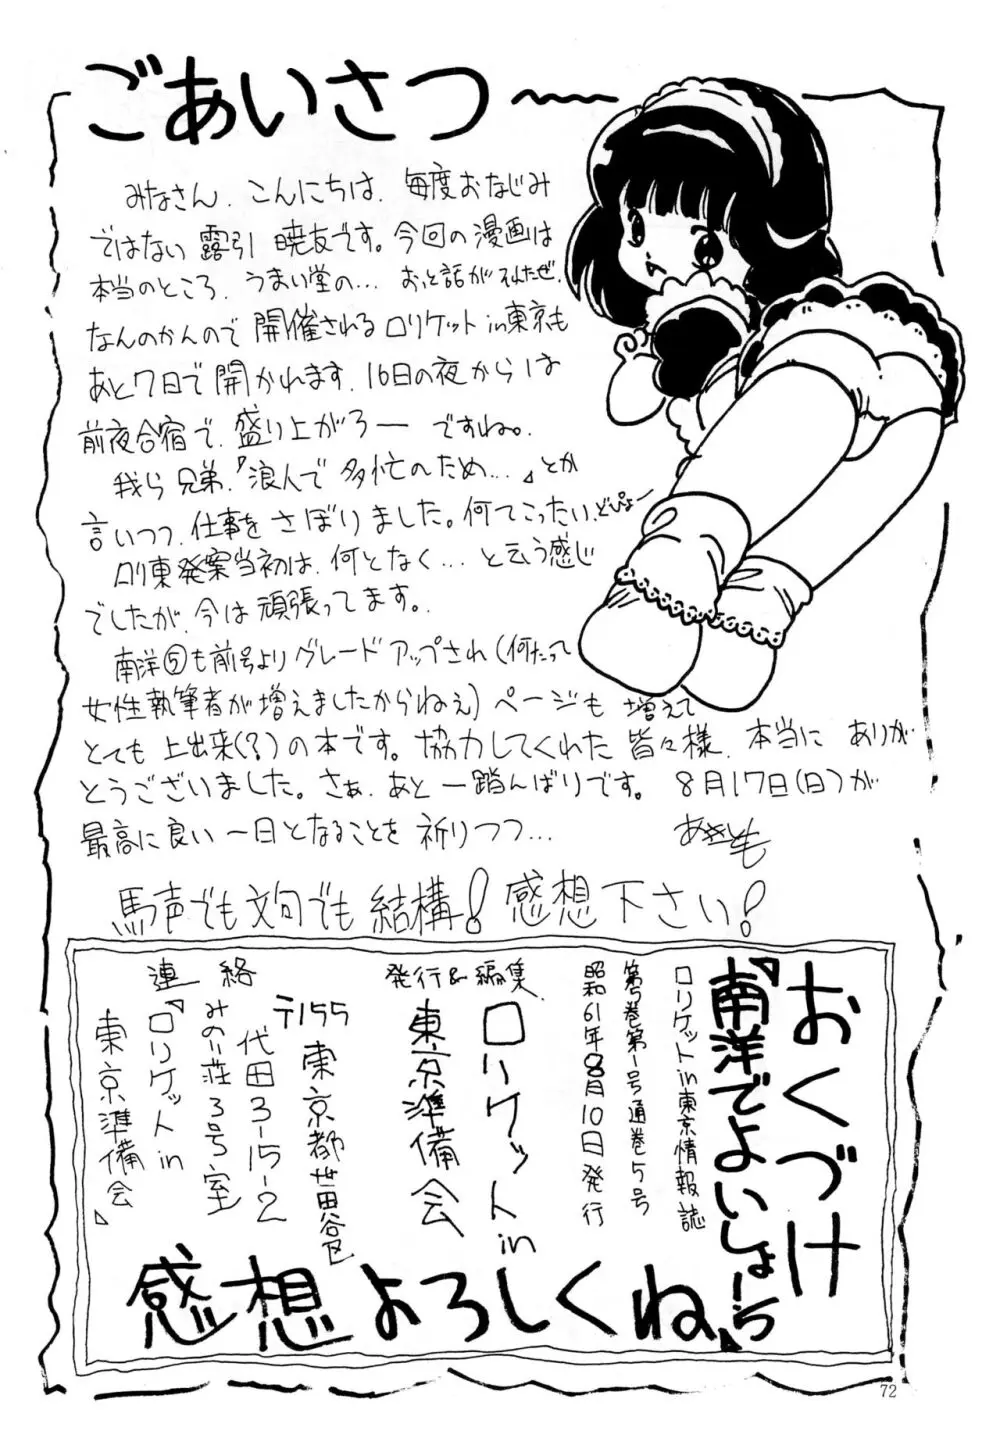 ごあいさつ〜
みなさん、こんにちは、毎度おなじみ
ではない 露引 暁友です。今回の漫画は
本当のところ、うまい堂の… おっと話がそれたぜ、
なんのかんので開催されるロリケットin東京も
あと7日で開かれます。16日の夜からは
前夜合宿で、盛り上がろー ですね。
我ら兄弟、『浪人で多忙のため…』とか
言いつつ、仕事をさぼりました。何てこったい、どぴょー
ロリ東発案当初は、何となく…と云う感じ
でしたが、今は頑張ってます。
南洋⑤も前号よりグレードアップされ(何たって
女性執筆者が増えましたからねぇ)ページも増えて
とても上出来(?)の本です。協力してくれた皆々様、本当にありが
とうございました。さぁ、あと一踏んばりです。8月17日(日)が
最高に良い一日となることを祈りつつ…
あきとも
馬声でも文句でも結構!感想下さい!
おくづけ
『南洋でよいしょーら』
ロリケットin東京情報誌
第5巻第1号通巻5号
昭和61年8月10日発行
発行&編集
ロリケットin
東京準備会
〒155 東京都世田谷区
代田3-15-2
みのり荘3号室
連絡
『ロリケットin
東京準備会』
感想よろしくね
72